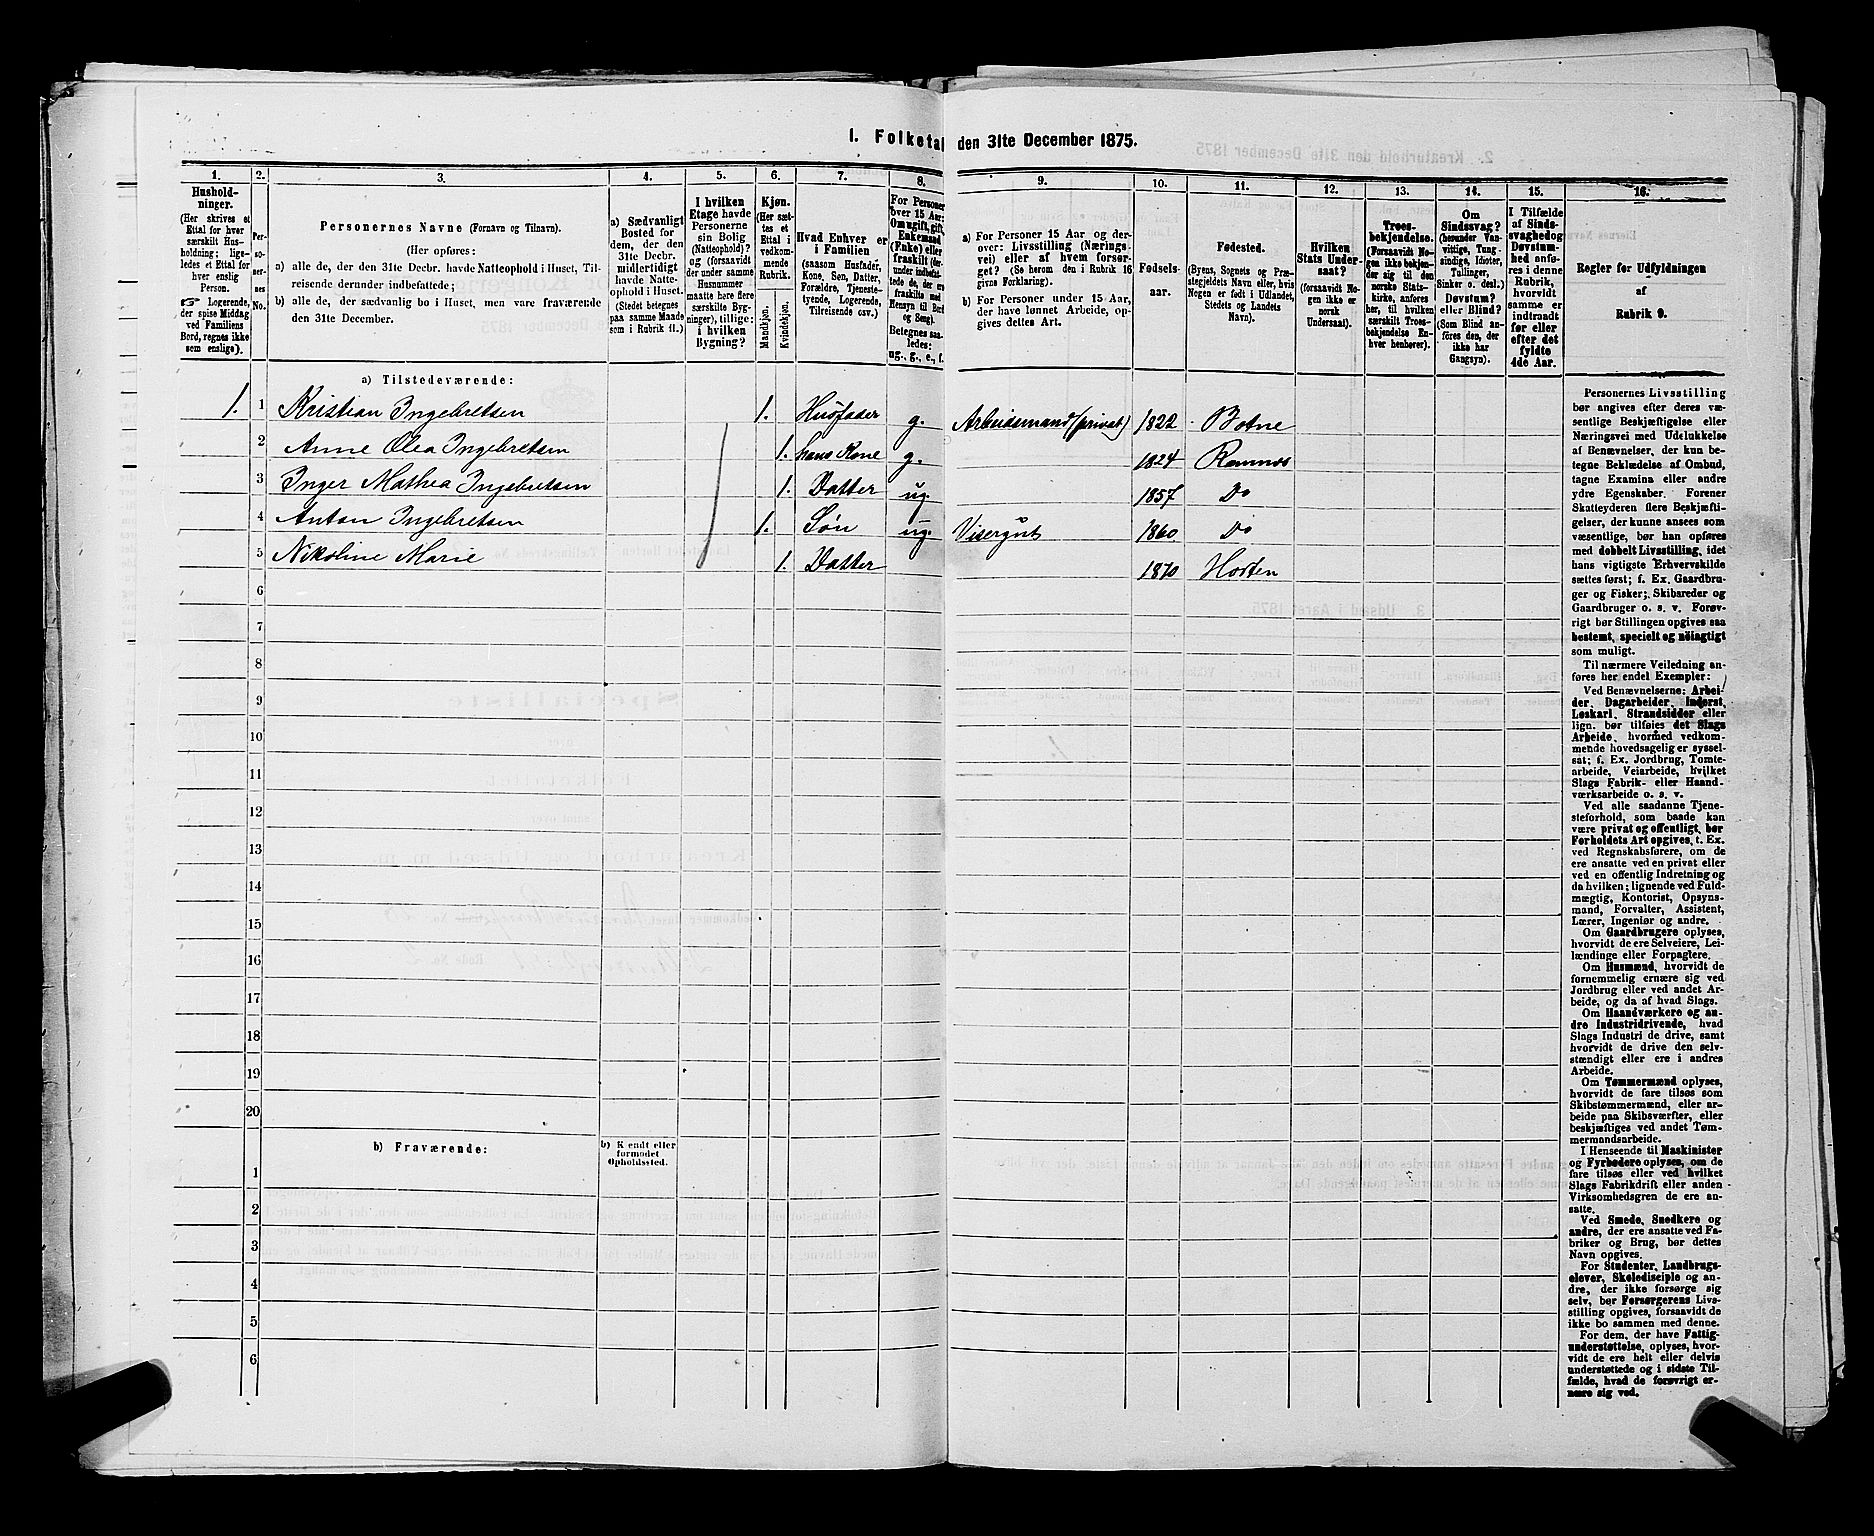 1. Folketal den 31te December 1875.
1. 2. 3. 4. 5. 6. 7. 8. 9. 10. 11. 12. 13. 14. 15. 16.
Hushold-
ninger.
(Her skrives et
Ettal for hver
særskilt Hus-
holdning; lige-
ledes et Ettal for
hver enslig
Person.
☞ Logerende,
der spise Middag
ved Familiens
Bord, regnes ikke
som enslige).
Per-
so-
ner-
nes
No.
Personernes Navne (Fornavn og Tilnavn).
(Her opføres:
a) alle de, der den 31te Decbr. havde Natteophold i Huset, Til-
reisende derunder indbefattede;
b) alle de, der sædvanlig bo i Huset, men vare fraværende
den 31te December.
a) Sædvanligt
Bosted for
dem, der den
31te Decbr.
midlertidigt
havde Natte-
ophold i Huset.
(Stedet betegnes
paa samme Maade
som i Rubrik 11.)
I hvilken
Etage havde
Personerne
sin Bolig
(Natteophold)?
og (forsaavidt
der under samme
Husnummer
maatte høre flere
særskilte Byg-
ninger), tillige:
i hvilken
Bygning?
Kjøn.
(Her sæt-
tes et
Ettal i
vedkom-
mende
Rubrik.
Mandkjøn.
Kvindekjøn.
Hvad Enhver er
i Familien
(saasom Husfader,
Kone, Søn, Datter,
Forældre, Tjeneste-
tyende, Logerende,
Tilreisende osv.)
For Personer
over 15 Aar:
Om ugift, gift,
Enkemand
(Enke) eller
fraskilt (der-
under indbefat-
tede de, der ere
fraskilte med
Hensyn til Bord
og Seng).
Betegnes saa-
ledes:
ug., g., e., f.
a) For Personer 15 Aar og der-
over: Livsstilling (Nærings-
vei) eller af hvem forsør-
get? (Se herom den i Rubrik 16
givne Forklaring).
b) For Personer under 15 Aar,
der have lønnet Arbeide, op-
gives dettes Art.
Fødsels-
aar.
Fødested.
(Byens, Sognets og Præ-
stegjeldets Navn, eller, hvis
Nogen er født i Udlandet,
Stedets og Landets
Navn).
Hvilken
Stats Under-
saat?
(forsaavidt No-
gen ikke er
norsk
Undersaat).
Troes-
bekjendelse.
(Forsaavidt No-
gen ikke bekjen-
der sig til den
norske Stats-
kirke, anføres
her, til hvilken
særskilt Troes-
bekjendelse En-
hver henhører).
Om
Sindssvag?
(herunder Van-
vittige, Tung-
sindige, Idioter,
Tullinger,
Sinker o. desl.)
Døvstum?
eller Blind?
(Som Blind an-
føres den, der
ikke har
Gangsyn).
I Tilfælde
af Sinds-
svaghed og
Døvstum-
hed anfø-
res i denne
Rubrik,
hvorvidt
samme er
indtraadt
før eller
efter det
fyldte
4de Aar.
Regler før Udfyldningen
af
Rubrik 9.
a) Tilstedeværende:
1. 1 Kristian Ingebretsen 1. Husfader g. Arbeidsmand (privat) 1822 Botne
2 Anne Olea Ingebretsen 1. hans Kone g. 1824 Ramnes
3 Inger Mathea Ingebretsen 1. Datter ug. 1857 Do
4 Anton Ingebretsen 1. Søn ug. Visergut 1860 Do
5 Nikoline Marie 1. Datter 1870 Horten
6
7
8
9
10
11
12
13
14
15
16
17
18
19
20
b) Fraværende:
b) Kjendt eller
formodet
Opholdssted.
1
2
3
4
5
6
Personernes Livsstilling
bør angives efter deres væ-
sentlige Beskjæftigelse eller
Næringsvei med Udelukkelse
af Benævnelser, der kun be-
tegne Beklædelse af Ombud,
tagne Examina eller andre
ydre Egenskaber. Forener
Skatteyderen flere Beskjæfti-
gelser, der kunne ansees som
væsentlige, bør han opføres
med dobbelt Livsstilling, idet
hans vigtigste Erhvervskilde
sættes først; f. Ex. Gaardbru-
ger og Fisker; Skibsreder og
Gaardbruger o. s. v. Forøv-
rigt bør Stillingen opgives saa
bestemt, specielt og nøiagtigt
som muligt.
Til nærmere Veiledning an-
føres her endel Exempler:
Ved Benævnelserne: Arbei-
der, Dagarbeider, Inderst,
Løskarl, Strandsidder eller
lign. bør tilføies det Slags
Arbeide, hvormed vedkom-
mende hovedsagelig er syssel-
sat; f. Ex. Jordbrug, Tomte-
arbeide, Veiarbeide, hvilket
Slags Fabrik- eller Haand-
værksarbeide o. s. v.
Ved alle saadanne Tjene-
steforhold, som baade kan
være privat og offentligt, bør
Forholdets Art opgives, t. Ex.
ved Regnskabsførere, om de
ere ansatte ved en privat eller
ved en offentlig Indretning og
da hvilken; lignende ved Fuld-
mægtig, Kontorist, Opsyns-
mand, Forvalter, Assistent,
Lærer, Ingeniør og andre.
Om Gaardbrugere oplyses,
hvorvidt de ere Selveiere, Lei-
lændinge eller Forpagtere.
Om Husmænd, hvorvidt de
fornemmelig ernære sig ved
Jordbrug eller ved andet Ar-
beide, og da af hvad Slags.
Om Haandværkere og an-
dre Industridrivende, hvad
Slags Industri de drive, samt
hvorvidt de drive den selv-
stændigt eller ere i andres
Arbeide.
Om Tømmermænd oplyses,
hvorvidt de fare tilsøs som
Skibstømmermænd, eller ar-
beide paa Skibsværfter, eller
beskjæftiges ved andet Tøm-
mermandsarbeide.
I Henseende til Maskinister
og Fyrbødere oplyses, om de
fare tilsøs eller ved hvilket
Slags Fabrikdrift eller anden
Virksomhedsgren de ere an-
satte.
Ved Smede, Snedkere og
andre, der ere ansatte ved Fa-
briker og Brug, bør dettes
Navn opgives.
For Studenter, Landbrugs-
elever, Skoledisciple og an-
dre, der ikke forsørge sig
selv, bør Forsørgerens Livs-
stilling opgives, forsaavidt de
ikke bo sammen med denne.
For dem, der have Fattig-
understøttelse, oplyses, hvor-
vidt de ere helt eller delvis
understøttede og i sidste Til-
fælde, hvad de forøvrigt er-
nære sig ved.